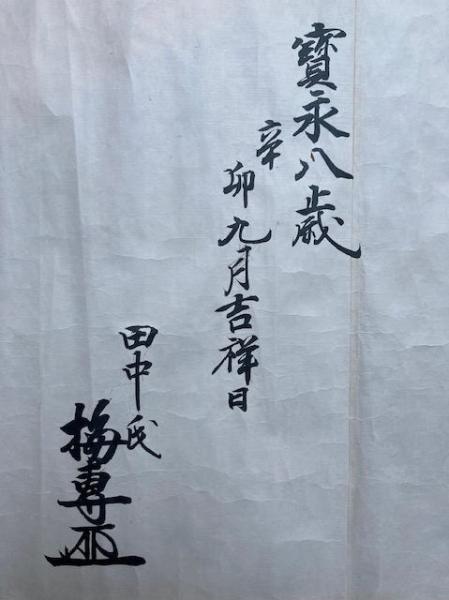 寳永八歳
辛卯九月吉祥日
田中氏
梅專